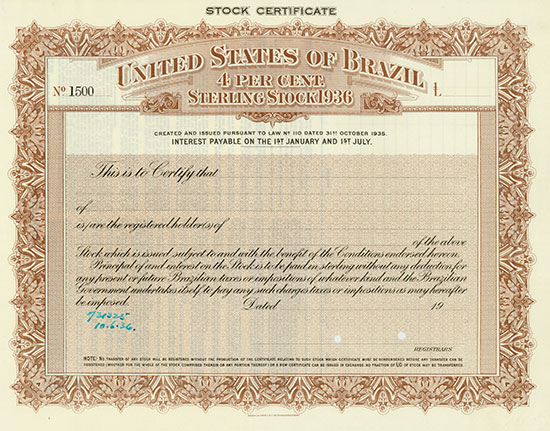 STOCK CERTIFICATE
UNITED STATES OF BRAZIL
4 PER CENT.
STERLING STOCK 1936
Nº 1500
£
CREATED AND ISSUED PURSUANT TO LAW Nº 110 DATED 31ST OCTOBER 1935.
INTEREST PAYABLE ON THE 1ST JANUARY AND 1ST JULY.
This is to Certify that
of
is/are the registered holder(s) of
of the above
Stock which is issued subject to and with the benefit of the Conditions endorsed hereon.
Principal of and interest on the Stock is to be paid in sterling without any deduction for
any present or future Brazilian taxes or impositions of whatever kind and the Brazilian
Government undertakes itself to pay any such charges taxes or impositions as may hereafter
be imposed. Dated 19
10.6.36.
REGISTRARS
NOTE: NO TRANSFER OF ANY STOCK WILL BE REGISTERED WITHOUT THE PRODUCTION OF THE CERTIFICATE RELATING TO SUCH STOCK WHICH CERTIFICATE MUST BE SURRENDERED BEFORE ANY TRANSFER CAN BE
REGISTERED (WHETHER FOR THE WHOLE OF THE STOCK COMPRISED THEREIN OR ANY PORTION THEREOF) OR A NEW CERTIFICATE CAN BE ISSUED IN EXCHANGE. NO FRACTION OF £10 OF STOCK MAY BE TRANSFERRED.